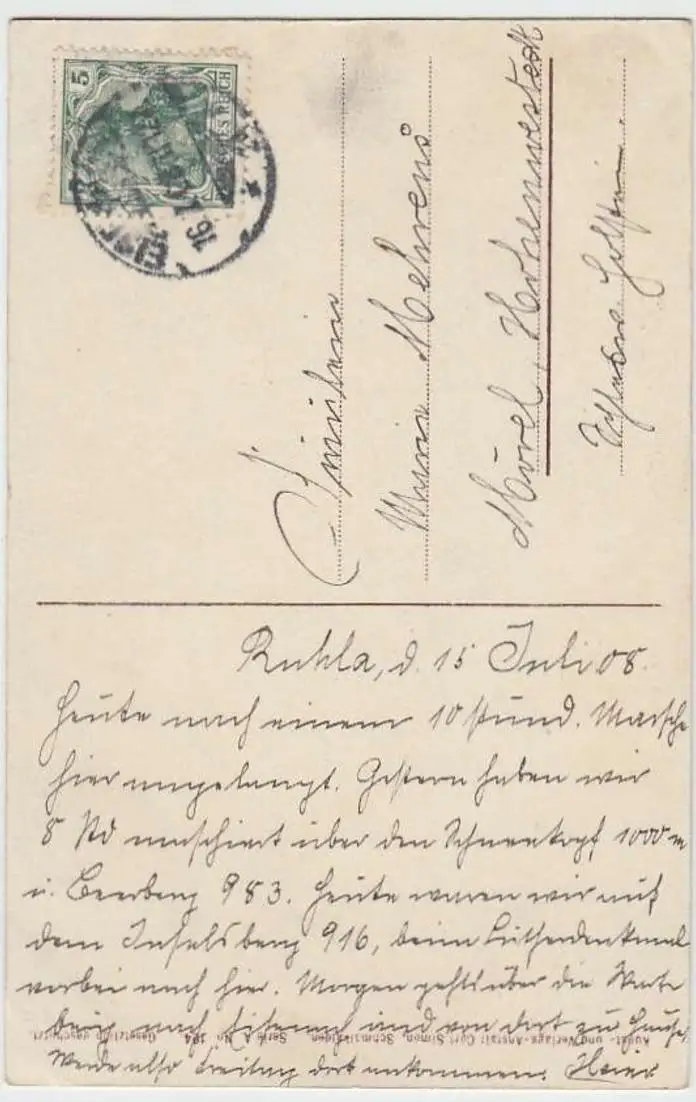 5
DEUTSCHES REICH
EISENACH
16.7.
Fräulein
Mehrens
Mörel, Hohenwestedt
Schlesw. Holstein.
Ruhla, d. 15 Juli 08.
Heute nach einem 10 stünd. Marsche
hier angelangt. Gestern haben wir
8 Std marschiert über den Schneekopf 1000 m
u. Beerberg 983. Heute waren wir auf
dem Inselsberg 916, beim Lutherdenkmal
vorbei nach hier. Morgen gehts über die Wart
burg nach Eisenach und von dort zu Hause,
Werde also Freitag dort ankommen.
Kunst- und Verlags-Anstalt Carl Simon, Schmalkalden. Serie A No 194 Gesetzlich geschützt